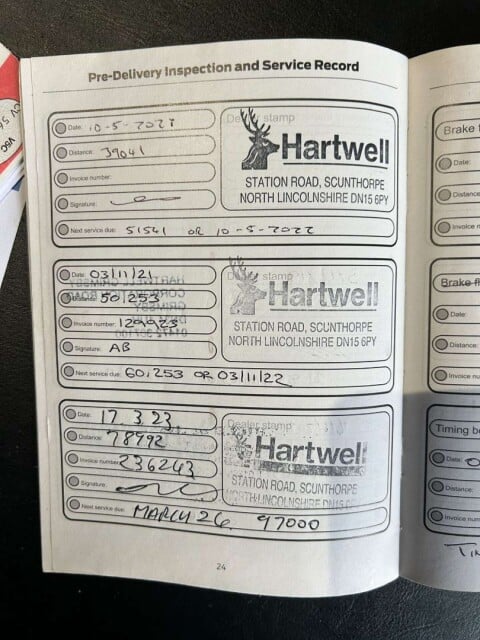 Pre-Delivery Inspection and Service Record
Date: 10-5-2021
Distance: 39041
Invoice number:
Signature:
Dealer stamp
Hartwell
STATION ROAD, SCUNTHORPE
NORTH LINCOLNSHIRE DN15 6PY
Next service due: 51541 OR 10-5-2022
Date: 03/11/21
Distance: 50,253
Invoice number:
Signature: AB
Dealer stamp
Hartwell
STATION ROAD, SCUNTHORPE
NORTH LINCOLNSHIRE DN15 6PY
Next service due: 60,253 OR 03/11/22
Date: 17.3.23
Distance: 78992
Invoice number: 236243
Signature:
Dealer stamp
Hartwell
STATION ROAD, SCUNTHORPE
NORTH LINCOLNSHIRE DN15 6PY
Next service due: MARCH 26 97000
24
Brake
Date:
Distance:
Invoice
Brake
Date:
Distance:
Invoice nu
Timing be
Date:
Distance:
Invoice num